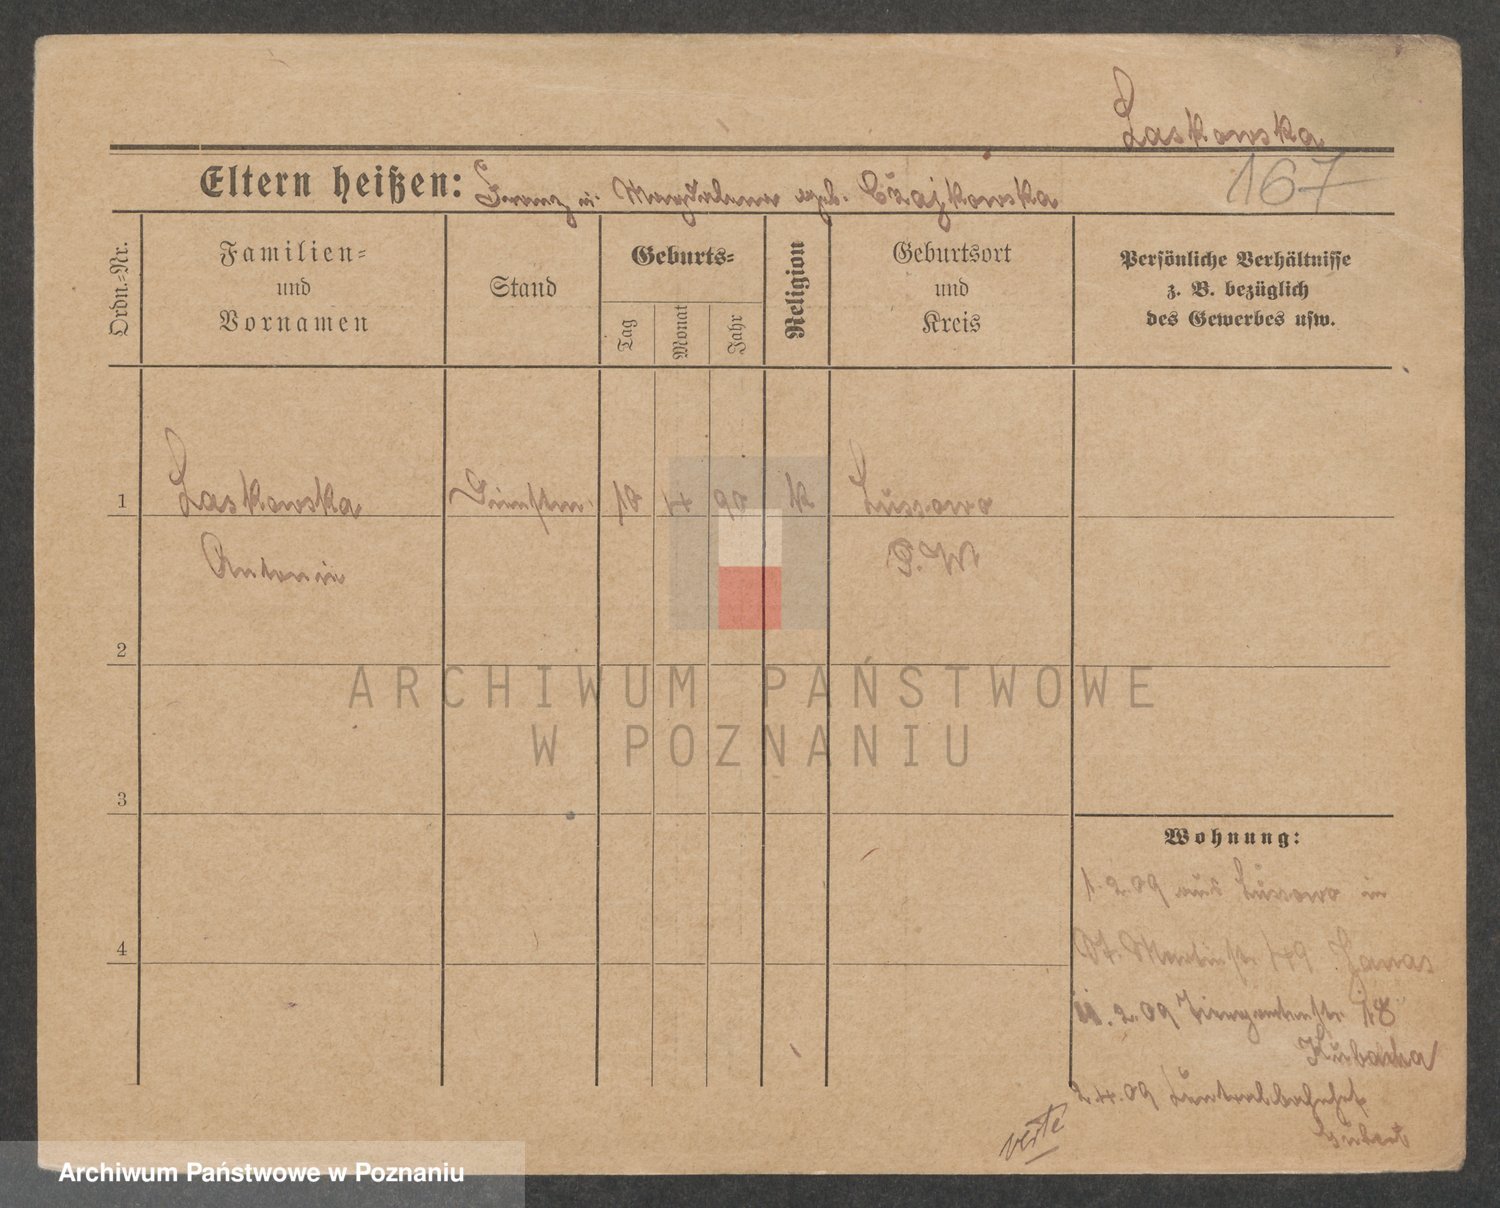 Laskowska
167
Eltern heißen: Franz u. Magdalena geb. Czajkowska
Ordn.-Nr.
Familien-
und
Vornamen
Stand
Geburts-
Tag
Monat
Jahr
Religion
Geburtsort
und
Kreis
Persönliche Verhältnisse
z. B. bezüglich
des Gewerbes usw.
1 Laskowska 10 4 90 k Lussowo
Antonie P.W
2
ARCHIWUM PAŃSTWOWE
W POZNANIU
3
Wohnung:
1.2.09 aus Lussowo in
4
St. Martinstr 49
11.2.09 Tiergartenstr 18
Kubacka
2.4.09 Centralbahnhof
verte
Archiwum Państwowe w Poznaniu